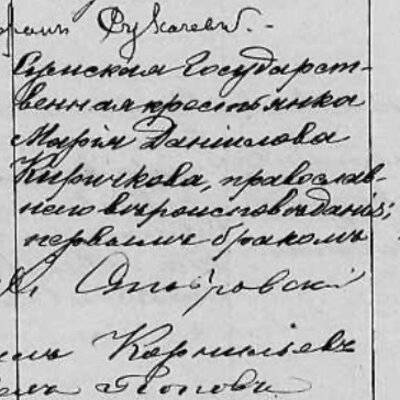 Сумская государст-
венная крестьянка
Марія Данілова
Киричкова, православ-
наго вѣроисповѣданія;
первымъ бракомъ
Корнильевъ
Поповъ